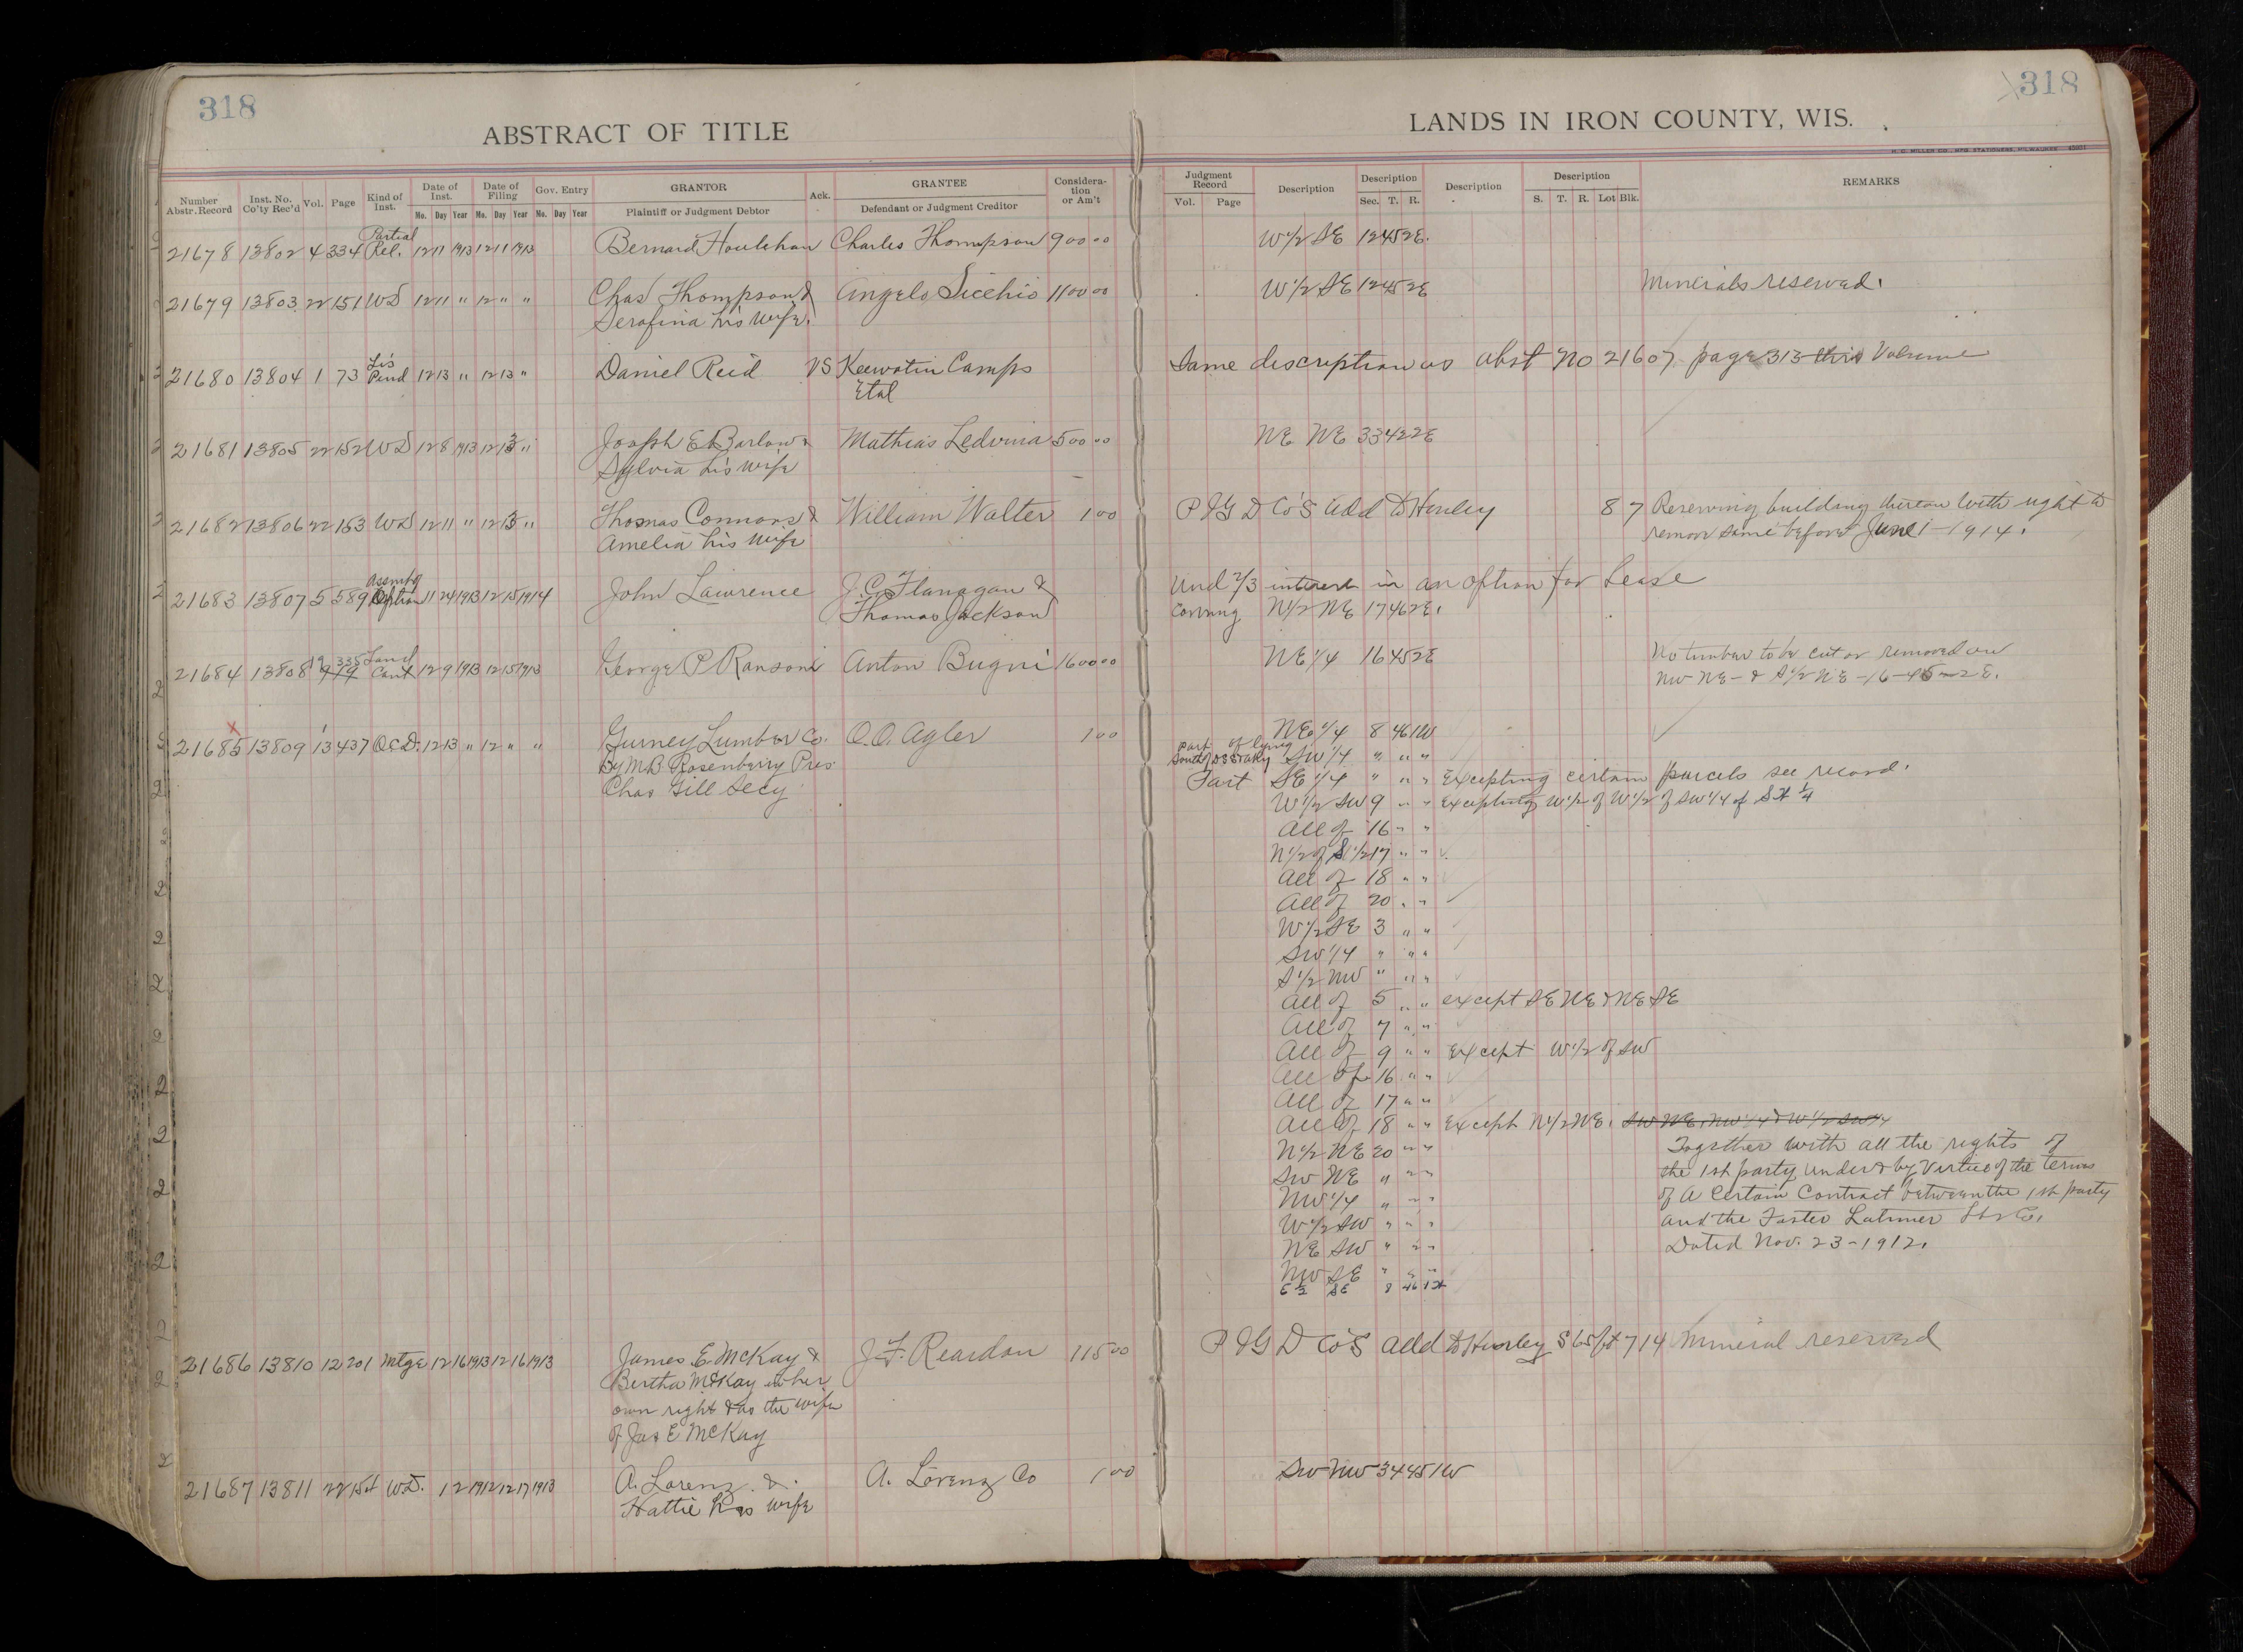 318
318
ABSTRACT OF TITLE
LANDS IN IRON COUNTY, WIS.
H. C. MILLER CO., MFG. STATIONERS, MILWAUKEE
Number Abstr. Record
Inst. No. Co'ty Rec'd
Vol.
Page
Kind of Inst.
Date of Inst.
Mo. Day Year
Date of Filing
Mo. Day Year
Gov. Entry
Mo. Day Year
GRANTOR
Plaintiff or Judgment Debtor
Ack.
GRANTEE
Defendant or Judgment Creditor
Considera-tion or Am't
Judgment Record
Vol. Page
Description
Description
Sec. T. R.
Description
Description
S. T. R. Lot Blk.
REMARKS
21678 13802 4 334 Partial Rel. 12 11 1913 12 11 1913 Bernard Houlehan Charles Thompson 900 00 W 1/2 SE 12 45 2E.
21679 13803 22 151 WD 12 11 " 12 " " Chas Thompson & Angelo Sicchio 1100 00 W 1/2 SE 12 45 2E Minerals reserved.
Serafina his wife.
21680 13804 1 73 Lis Pend 12 13 " 12 13 " Daniel Reid VS Keewatin Camps Same description as abst No 21607 page 313 this Volume
Etal
21681 13805 22 152 WD 12 8 1913 12 13 " Joseph E Barlow & Mathias Ledvina 500 00 NE NE 33 42 2E
Sylvia his wife
21682 13806 22 153 WD 12 11 " 12 13 " Thomas Connors & William Walter 1 00 P I G D Co's Add To Hurley 8 7 Reserving building thereon with right to
Amelia his wife remove same before June 1 - 1914.
21683 13807 5 589 Assmt of Option 11 24 1913 12 15 1914 John Lawrence J.C. Flanagan & Und 2/3 interest in an option for Lease
Thomas Jackson Covering N 1/2 NE 17 46 2E.
21684 13808 19 335 Land Cont 12 9 1913 12 15 1913 George P Ransom Anton Bugni 1600 00 NE 1/4 16 45 2E No timber to be cut or removed on
NW NE - & S 1/2 NE - 16 - 45 - 2 E.
21685 13809 13 437 Q C D. 12 13 " 12 " " Gurney Lumber Co. O.O. Agler 1 00 NE 1/4 8 46 1W
By M.B. Rosenberry Pres. part of lying South of D S S & A Ry SW 1/4 " " "
Chas Gill Secy Part SE 1/4 " " " Excepting certain parcels see record.
W 1/2 SW 9 " " Excepting W 1/2 of W 1/2 of SW 1/4 of SW 1/4
All of 16 " "
N 1/2 of S 1/2 17 " "
All of 18 " "
All of 20 " "
W 1/2 SE 3 " "
SW 1/4 " " "
S 1/2 NW " " "
All of 5 " " except SE NE & NE SE
All of 7 " "
All of 9 " " Except W 1/2 of SW
All of 16 " "
All of 17 " "
All of 18 " " Except N 1/2 NE. SW NE, NW 1/4 & W 1/2 SW 1/4
N 1/2 NE 20 " " Together with all the rights of
SW NE " " " the 1st party under & by Virtue of the terms
NW 1/4 " " " of a Certain Contract between the 1st party
W 1/2 SW " " " and the Foster Latimer Lbr Co.
NE SW " " " Dated Nov. 23 - 1912.
NW SE " " "
E 1/2 SE 8 46 1W
21686 13810 12 201 Mtge 12 16 1913 12 16 1913 James E. McKay & J.F. Reardon 115 00 P I G D Co's Add To Hurley S 65 ft 7 14 Mineral reserved
Bertha McKay in her
own right & as the wife
of Jas E McKay
21687 13811 22 154 WD. 1 2 1912 12 17 1913 A. Lorenz & A. Lorenz Co 1 00 SW NW 34 45 1W
Hattie his wife